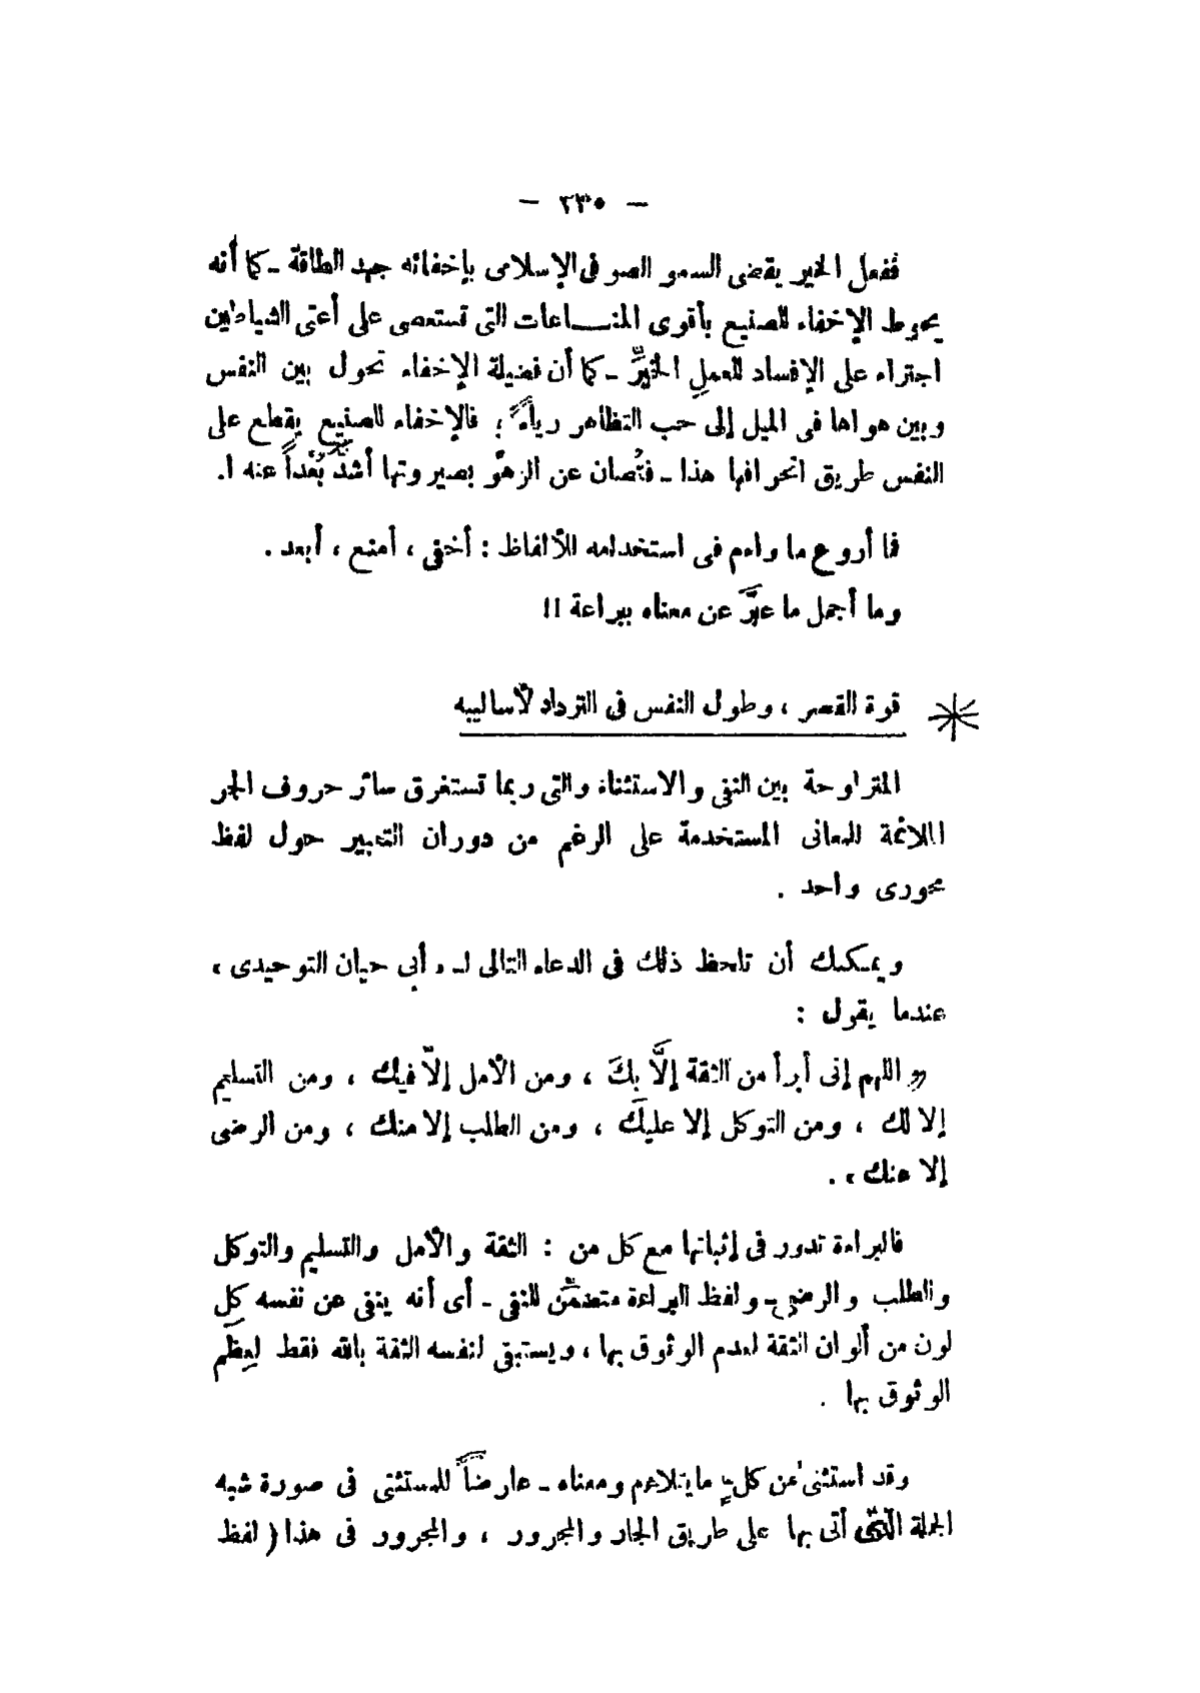 — ٢٣٠ —
ففعل الخير يقضى السمو الصوفى الإسلامى بإخفائه جهد الطاقة ـ كما أنه
يحوط الإخفاء للصنيع بأقوى المناعات التى تستعصى على أعتى الشياطين
اجتراء على الإفساد للعملِ الخيِّرِ ـ كما أن فضيلة الإخفاء تحول بين النفس
وبين هواها فى الميل إلى حب التظاهر رياءً ؛ فالإخفاء للصنيع يقطع على
النفس طريق انحرافها هذا ـ فتُصان عن الزهوِّ بصيرورتها أشدَّ بُعْداً عنه ا.
فما أروع ما واءم فى استخدامه للألفاظ : أخفى ، أمنع ، أبعد .
وما أجمل ما عبَّرَ عن معناه ببراعة !!
قوة القصر ، وطول النفس فى الترداد لأساليبه
المتراوحة بين النفى والاستثناء والتى ربما تستغرق سائر حروف الجر
الملائمة للمعانى المستخدمة على الرغم من دوران التعبير حول لفظ
محورى واحد .
ويمكنك أن تلحظ ذلك فى الدعاء التالى لـ « أبى حيان التوحيدى »
عندما يقول :
« اللهم إنى أبرأ من الثقة إلَّا بِكَ ، ومن الأمل إلاّ فيك ، ومن التسليم
إلا لك ، ومن التوكل إلا عليكَ ، ومن الطلب إلا منك ، ومن الرضى
إلا عنك » .
فالبراءة تدور فى إثباتها مع كل من : الثقة والأمل والتسليم والتوكل
والطلب والرضى ـ ولفظ البراءة متضمِّن للنفى ـ أى أنه ينفى عن نفسه كل
لون من ألوان الثقة لعدم الوثوق بها ، ويستبقى لنفسه الثقة بالله فقط لعِظَم
الوثوق بها .
وقد استثنى من كلٍ ما يتلاءم ومعناه ـ عارضاً للمستثنى فى صورة شبه
الجملة الَّتى أتى بها على طريق الجار والمجرور ، والمجرور فى هذا ( لفظ